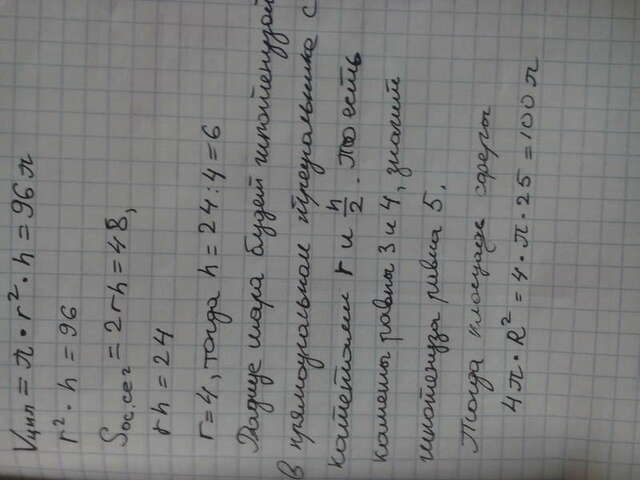 Vцил = π · r² · h = 96π
r² · h = 96
Sос.сег = 2rh = 48,
rh = 24
r = 4, тогда h = 24 : 4 = 6
Радиус шара будет гипотенузой
в прямоугольном треугольнике с
катетами r и h/2. То есть
катеты равны 3 и 4, значит
гипотенуза равна 5.
Тогда площадь сферы
4π · R² = 4 · π · 25 = 100π